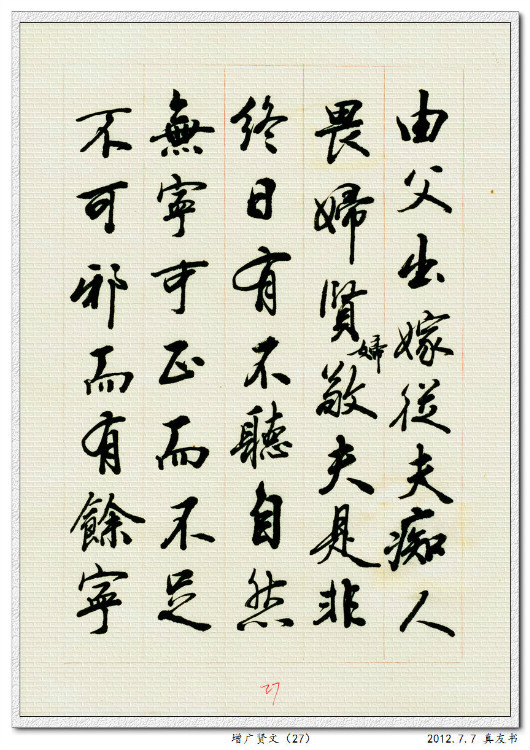 由父出嫁從夫痴人
畏婦賢婦敬夫是非
終日有不聽自然
無寧可正而不足
不可邪而有餘寧
27
增广贤文（27）
2012.7.7 真友书